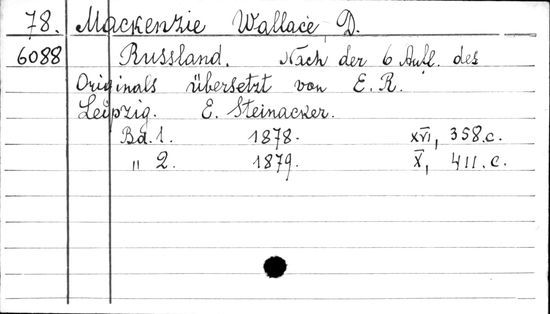 78. Mackenzie Wallace D.
6088 Russland. Nach der 6 Aufl. des
Originals übersetzt von E. R.
Leipzig. E. Steinacker.
Bd. 1. 1878. XVI, 358.c.
" 2. 1879. X, 411.c.